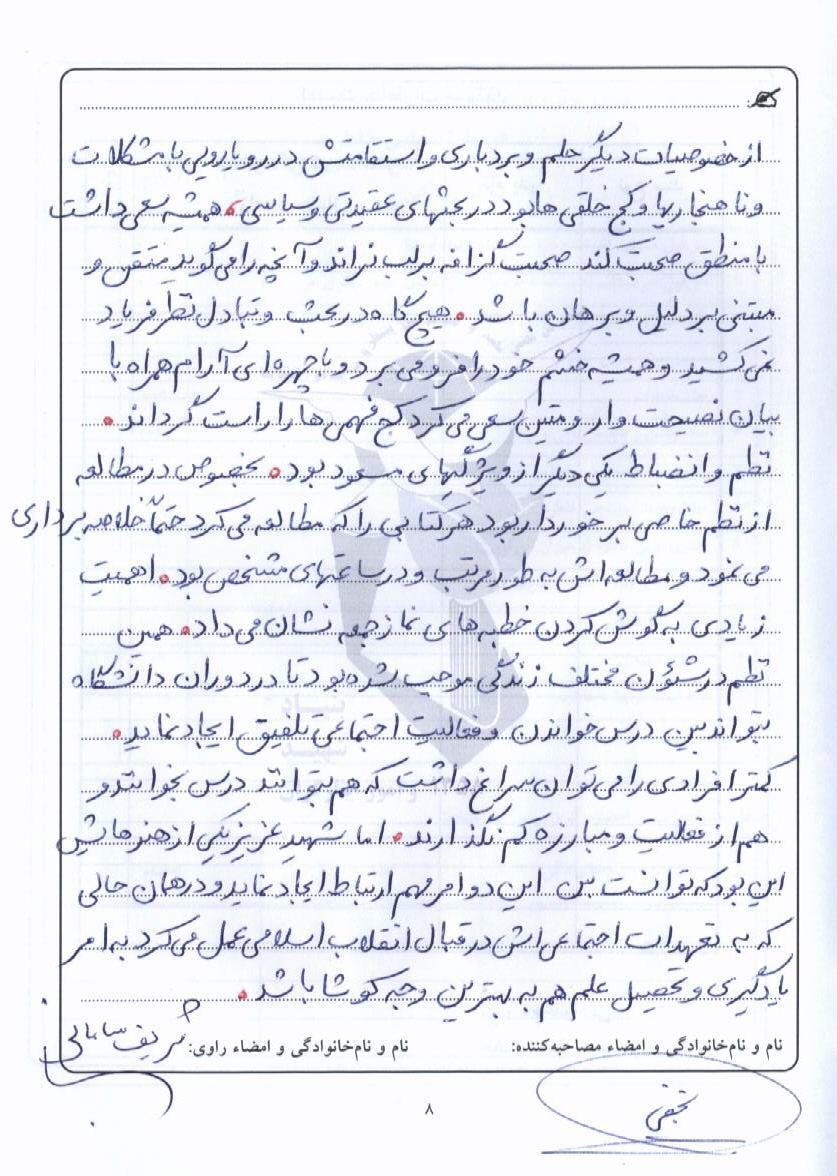 از خصوصیات دیگر حلم و بردباری و استقامتش در رویارویی با مشکلات
و ناهنجاریها و کج خلقی ها بود در بحثهای عقیدتی و سیاسی، همیشه سعی داشت
با منطق صحبت کند صحبت گزافه بر لب نراند و آنچه را می گوید متقن و
مبتنی بر دلیل و برهان باشد. هیچ گاه در بحث و تبادل نظر فریاد
نمی کشید و همیشه خشم خود را فرو می برد و با چهره ای آرام همراه با
بیان نصیحت وار و متین سعی می کرد کج فهمی ها را راست گرداند.
نظم و انضباط یکی دیگر از ویژگیهای مسعود بود. بخصوص در مطالعه
از نظم خاصی برخوردار بود هر کتابی را که مطالعه می کرد حتماً خلاصه برداری
می نمود و مطالعه اش به طور مرتب و در ساعتهای مشخص بود. اهمیت
زیادی به گوش کردن خطبه های نماز جمعه نشان می داد. همین
نظم در شئون مختلف زندگی موجب شده بود تا در دوران دانشگاه
بتواند بین درس خواندن و فعالیت اجتماعی تلفیق ایجاد نماید.
کمتر افرادی را می توان سراغ داشت که هم بتوانند درس بخوانند و
هم از فعالیت و مبارزه کم نگذارند. اما شهید عزیز یکی از هنرهایش
این بود که توانست بین این دو امر مهم ارتباط ایجاد نماید و در همان حالی
که به تعهدات اجتماعی اش در قبال انقلاب اسلامی عمل می کرد به امر
یادگیری و تحصیل علم هم به بهترین وجه کوشا باشد.
نام و نام‌خانوادگی و امضاء مصاحبه‌کننده: نام و نام‌خانوادگی و امضاء راوی: شریف
نجفی
۸